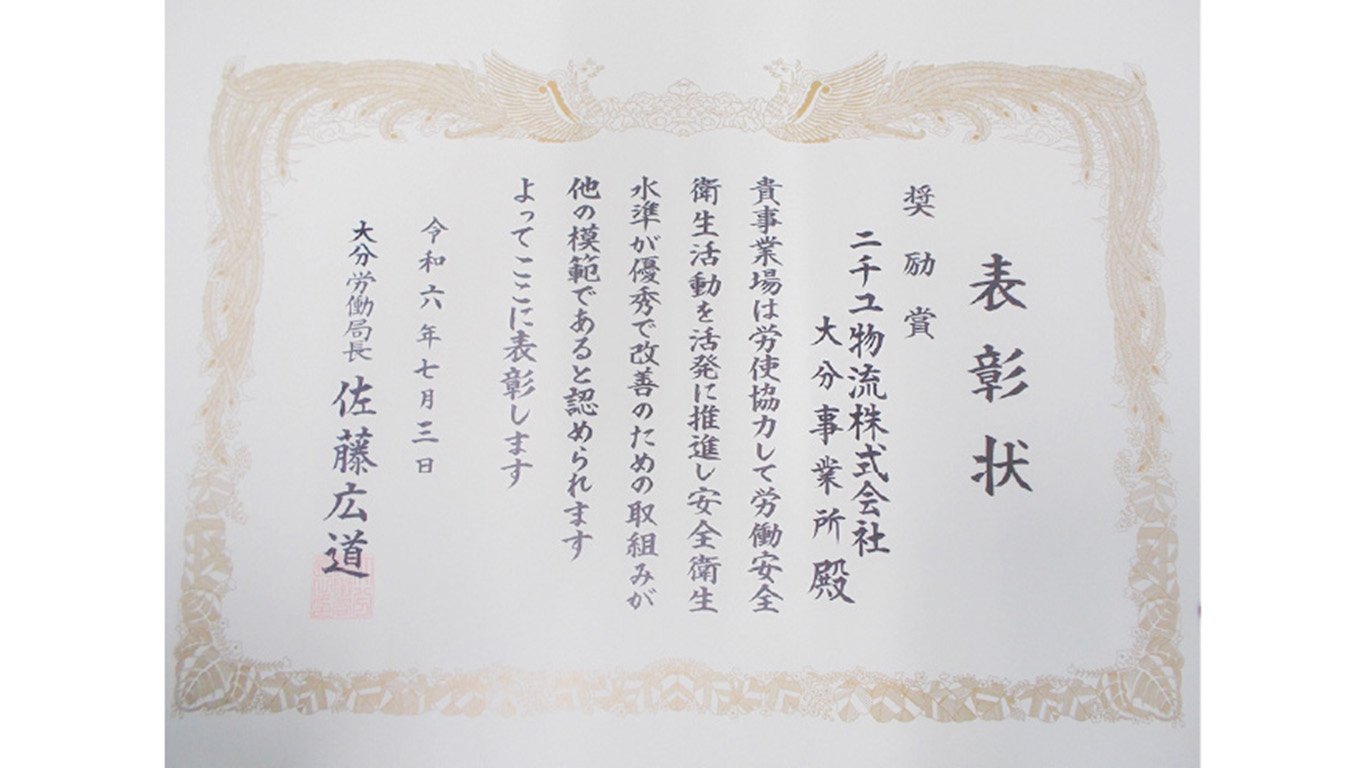 表彰状
奨励賞
ニチユ物流株式会社
大分事業所殿
貴事業場は労使協力して労働安全
衛生活動を活発に推進し安全衛生
水準が優秀で改善のための取組みが
他の模範であると認められます
よってここに表彰します
令和六年七月三日
大分労働局長 佐藤広道